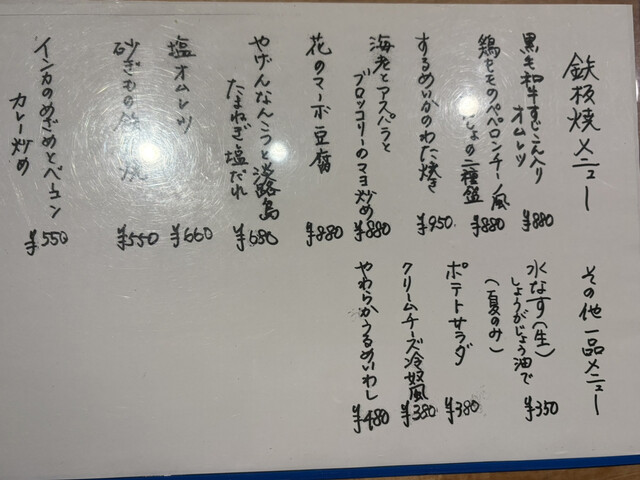 鉄板焼メニュー
黒毛和牛すじこん入り
オムレツ
¥880
鶏モモのペペロンチーノ風
¥880
するめいかのわた焼き
¥950
海老とアスパラと
ブロッコリーのマヨ炒め
¥880
花のマーボ豆腐
¥880
やげんなんこつと淡路島
たまねぎ塩だれ
¥680
塩オムレツ
¥660
砂ぎもの鉄 焼
¥550
インカのめざめとベーコン
カレー炒め
¥550
その他一品メニュー
水なす(生)
しょうがじょう油で
(夏のみ)
¥350
ポテトサラダ
¥380
クリームチーズ冷奴風
¥380
やわらかうるめいわし
¥480